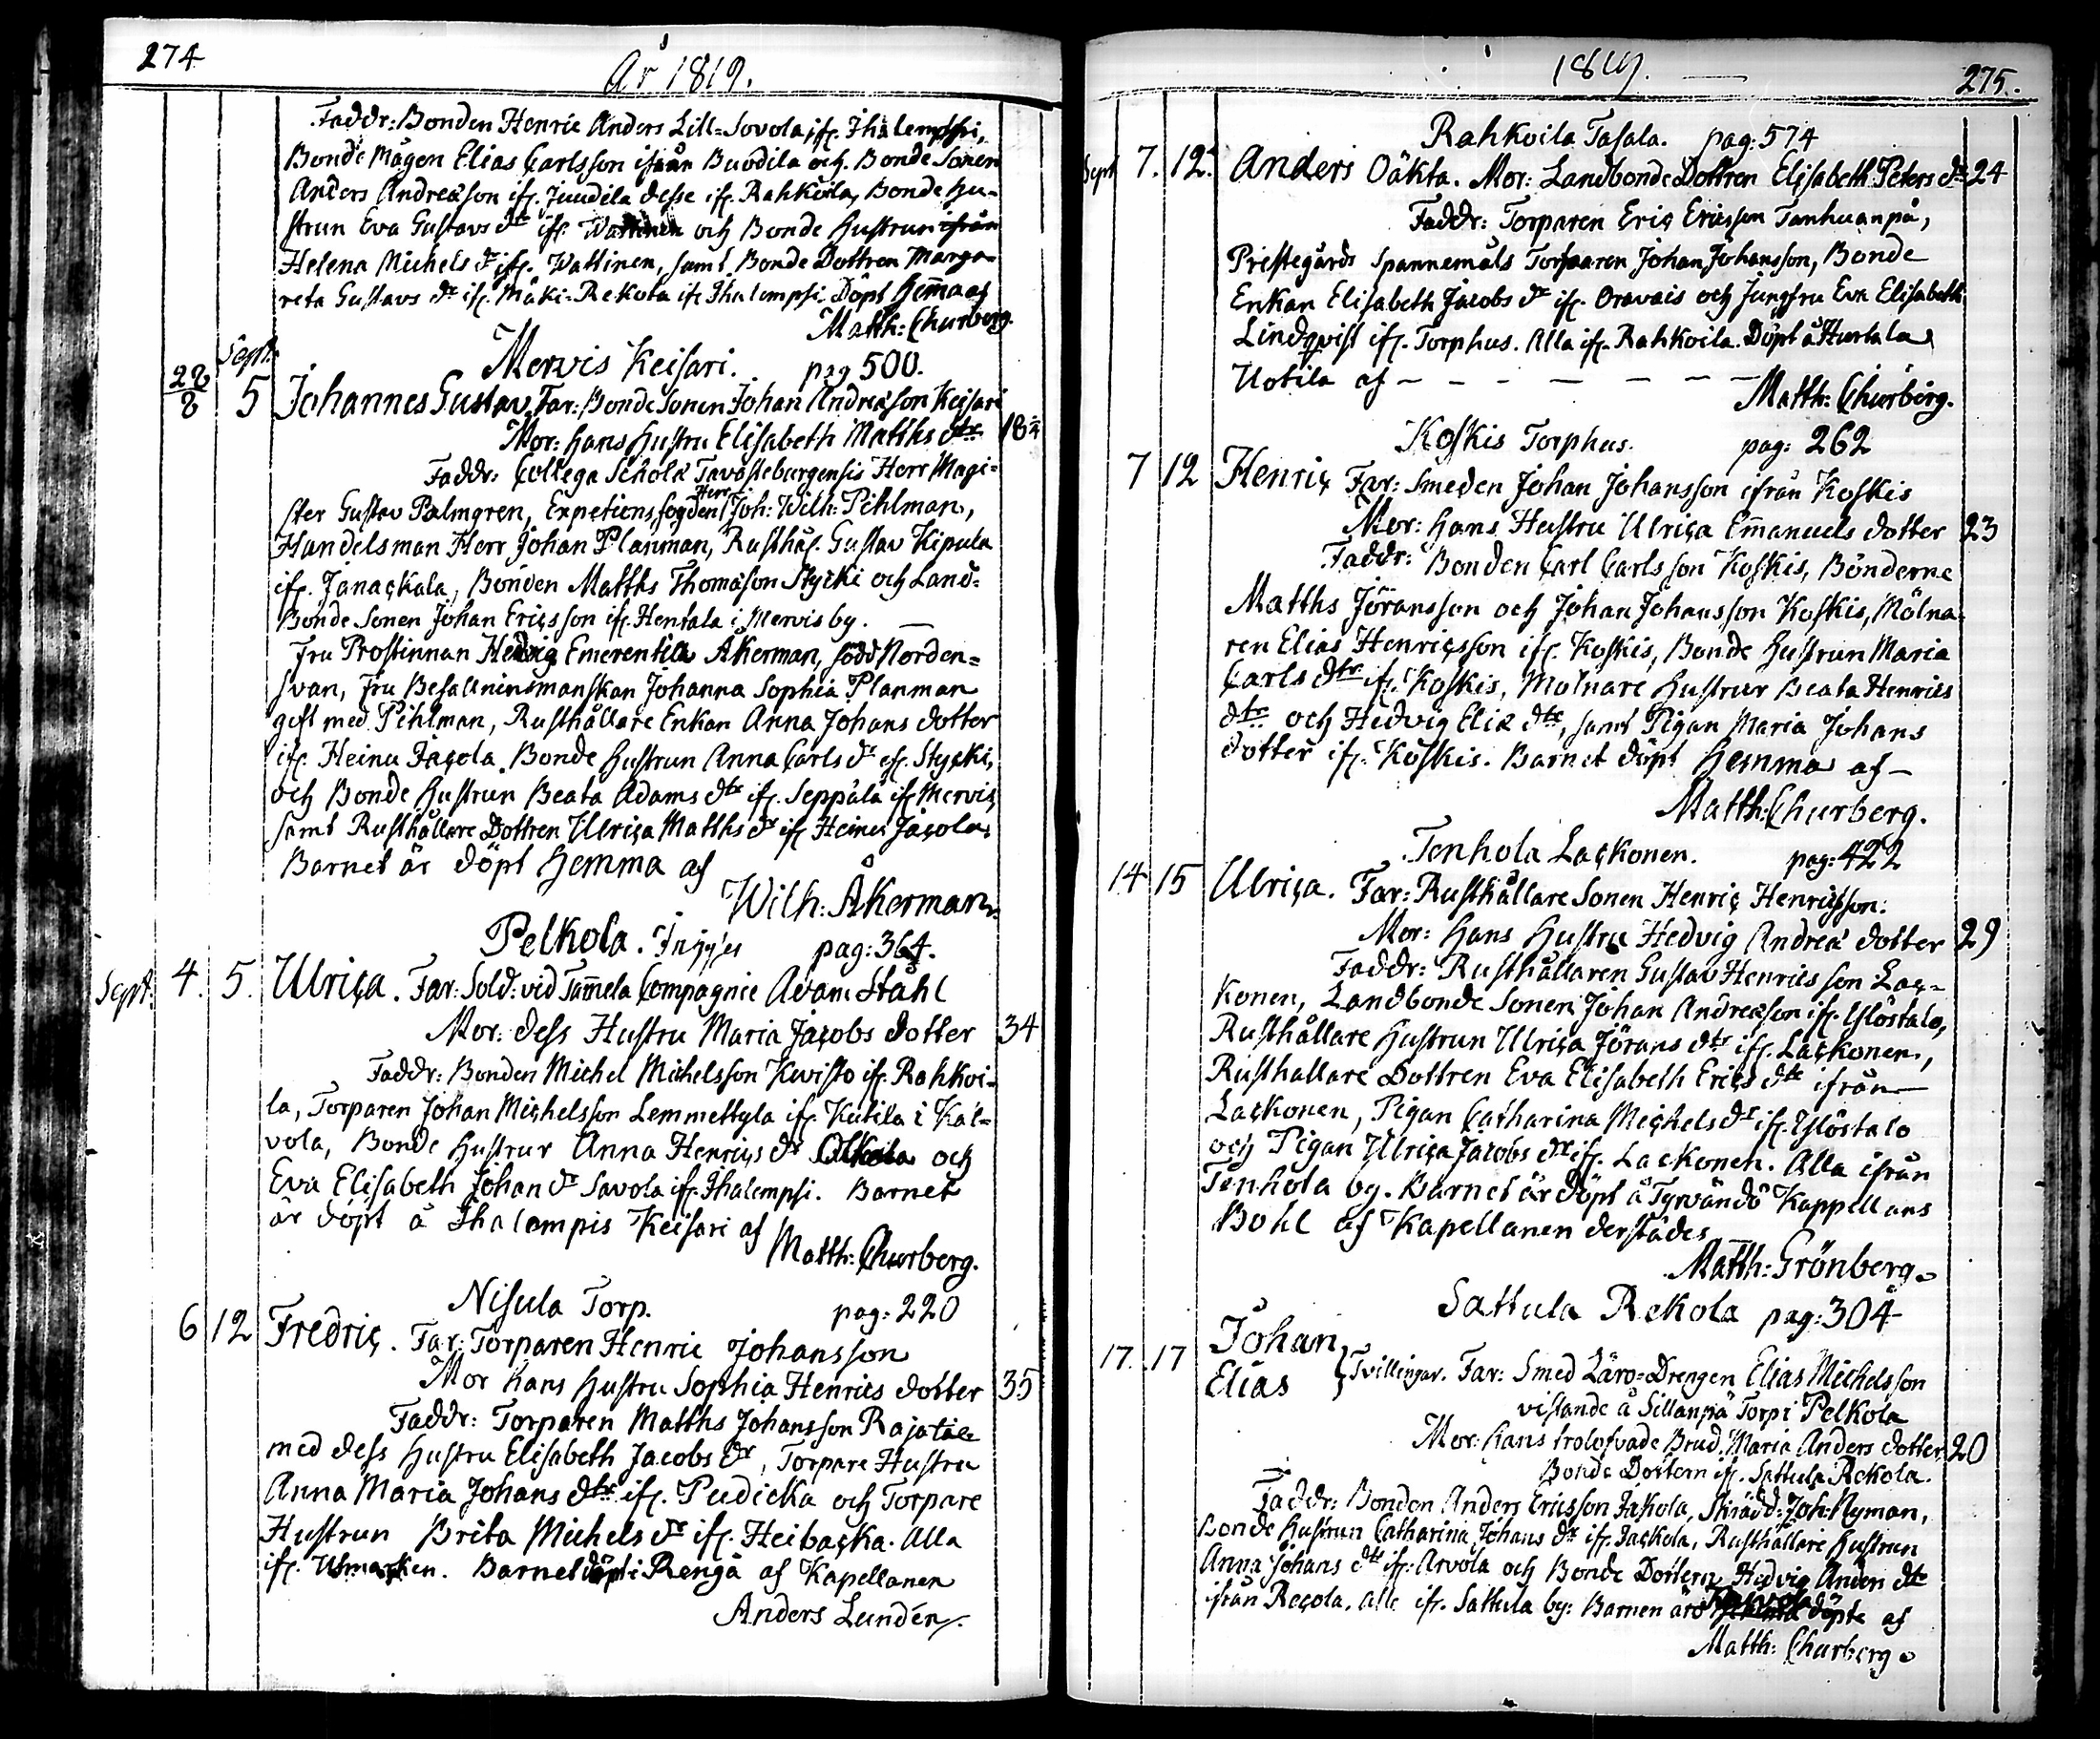 274
År 1819.
Faddr: Bonden Henric Anders Lill-Sovola if. Ihalempsi,
Bonde Mågen Elias Carlsson ifrån Buvdila och Bonde Sonen
Anders Andreæson if. Juudila desse if. Rahkoila, Bonde Hu-
strun Eva Gustavs dr if. och Bonde Hustrun ifrån
Helena Michels dr if. Wattinen, samt Bonde Dottren Marga-
reta Gustavs dr if. Mäki-Rekola if. Ihalempsi. Döpt hemma af
Matth: Churberg.
Sept:
Mervis Keisari. pag 500.
22/8 5 Johannes Gustav. Far: Bonde Sonen Johan Andreæson Keisari
Mor: hans Hustru Elisabeth Matths dtr 18
Faddr: Collega Scholæ Tavasteburgensis Herr Magi-
ster Gustav Palmgren, Expetions fogden Herr Joh: Wilh: Pihlman,
Handelsman Herr Johan Planman, Rusthål. Gustav Kipula
if. Janackala, Bonden Matths Thomæson Stycki och Land-
Bonde Sonen Johan Ericsson if. Hentala i Mervis by. —
Fru Prostinnan Hedvig Emerentia Åkerman, född Norden-
svan, Fru Befallninsmanskan Johanna Sophia Planman
gift med Pihlman, Rusthållare Enkan Anna Johans dotter
if. Heinu Jacola. Bonde Hustrun Anna Carls dr if. Stycki,
och Bonde Hustrun Beata Adams dtr if. Seppälä if. Mervis,
samt Rusthållare Dottren Ulrica Matths dr if. Heinu Jacola.
Barnet är döpt hemma af
Wilh: Åkerman.
Pelkola. pag: 364.
Sept: 4. 5. Ulrica. Far: Sold: vid Tam̄ela Compagnie Adam Ståhl
Mor: dess Hustru Maria Jacobs dotter 34
Faddr: Bonden Michel Michelsson Kvisto if. Rahkoi-
la, Torparen Johan Michelsson Lemmettyla if. Kutila i Kal-
vola, Bonde Hustrur Anna Henrics dr och
Eva Elisabeth Johan dr Savola if. Ihalempsi. Barnet
är döpt å Ihalempis Keisari af
Matth: Churberg.
Nisula Torp. pag: 220
6 12 Fredric. Far: Torparen Henric Johansson
Mor hans Hustru Sophia Henrics dotter 35
Faddr: Torparen Matths Johansson Rajatie
med dess Hustru Elisabeth Jacobs dr, Torpare Hustru
Anna Maria Johans dtr if. Pudicka och Torpare
Hustrun Brita Michels dr if. Heibacka. Alla
if. Utmarken. Barnet döpt i Rengå af Kapellanen
Anders Lundén.
1819.
275.
Rahkoila Tasala. pag: 574
Sept 7. 12. Anders Oäkta. Mor: Landbonde Dottren Elisabeth Peters dr 24
Faddr: Torparen Eric Ericsson Tanhuanpä,
Prestegårds Spannemåls Torparen Johan Johansson, Bonde
Enkan Elisabeth Jacobs dr if. Oravais och Jungfru Eva Elisabeth
Lindqvist if. Torphus. Alla if. Rahkoila. Döpt å Hurtala
Uotila af — — — — — — —
Matth: Churberg.
Koskis Torphus. pag: 262
7 12 Henric Far: Smeden Johan Johansson ifrån Koskis
Mor: hans Hustru Ulrica Em̄anuels dotter 23
Faddr: Bonden Carl Carlsson Koskis, Bönderne
Matths Jöransson och Johan Johansson Koskis, Mölna-
ren Elias Henricsson if. Koskis, Bonde Hustrun Maria
Carls dtr if. Koskis, Mölnare Hustrur Beata Henrics
dtr och Hedvig Eliæ dtr, samt Pigan Maria Johans
dotter if. Koskis. Barnet döpt hemma af —
Matth: Churberg.
Tenhola Lackonen. pag: 422
14 15 Ulrica. Far: Rusthållare Sonen Henric Henricsson.
Mor: hans Hustru Hedvig Andreæ dotter 29
Faddr: Rusthållaren Gustav Henricsson Lac-
konen, Landbonde Sonen Johan Andreæson if. Ylöstalo,
Rusthållare Hustrun Ulrica Jörans dtr if. Lackonen,
Rusthållare Dottren Eva Elisabeth Erics dtr ifrån
Lackonen, Pigan Catharina Michels dr if. Ylöstalo
och Pigan Ulrica Jacobs dr if. Lackonen. Alla ifrån
Tenhola by. Barnet är döpt å Tyrvändö Kappellans
Bohl af Kapellanen derstädes
Matth: Grönberg.
Sattula Rekola pag: 304
17. 17 Johan
Elias } Tvillingar. Far: Smed Läro-Drengen Elias Michelsson
vistande å Sillanpä Torp i Pelkola
Mor: hans trolofvade Brud. Maria Anders dotter 20
Bonde Dottern if. Sattula Rekola.
Faddr: Bonden Anders Ericsson Jakola, Skrädd: Joh: Nyman,
Bonde Hustrun Catharina Johans dr if. Jackola, Rusthållare Hustrun
Anna Johans dtr if. Arvola och Bonde Dottern Hedvig Anders dtr
ifrån Recola. alla if. Sattula by: Barnen äro döpte af
Matth: Churberg.